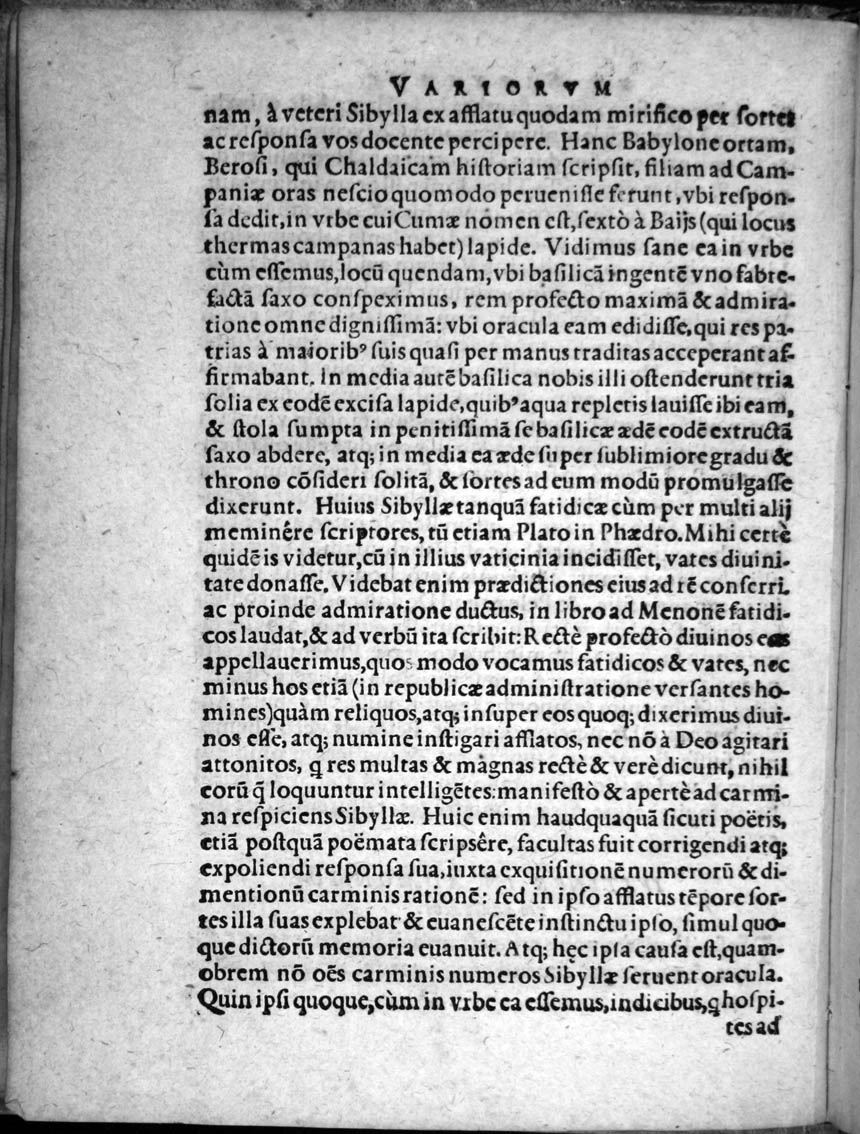 VARIORVM
nam, à veteri Sibylla ex afflatu quodam mirifico per sortes
ac responsa vos docente percipere. Hanc Babylone ortam,
Berosi, qui Chaldaicam historiam scripsit, filiam ad Cam-
paniæ oras nescio quomodo peruenisse ferunt, vbi respon-
sa dedit, in vrbe cui Cumæ nomen est, sextò à Baijs (qui locus
thermas campanas habet) lapide. Vidimus sane ea in vrbe
cùm essemus, locũ quendam, vbi basilicã ingentẽ vno fabre-
factã saxo conspeximus, rem profecto maximã & admira-
tione omne dignissimã: vbi oracula eam edidisse, qui res pa-
trias à maiorib⁹ suis quasi per manus traditas acceperant af-
firmabant. In media autẽ basilica nobis illi ostenderunt tria
solia ex eodẽ excisa lapide, quib⁹ aqua repletis lauisse ibi eam,
& stola sumpta in penitissimã se basilicæ ædẽ eodẽ extructã
saxo abdere, atq; in media ea æde super sublimiore gradu &
throno cõsideri solitã, & sortes ad eum modũ promulgasse
dixerunt. Huius Sibyllæ tanquã fatidicæ cùm per multi alij
meminêre scriptores, tũ etiam Plato in Phædro. Mihi certè
quidẽ is videtur, cũ in illius vaticinia incidisset, vates diuini-
tate donasse. Videbat enim prædictiones eius ad rẽ conferri.
ac proinde admiratione ductus, in libro ad Menonẽ fatidi-
cos laudat, & ad verbũ ita scribit: Rectè profectò diuinos eos
appellauerimus, quos modo vocamus fatidicos & vates, nec
minus hos etiã (in republicæ administratione versantes ho-
mines) quàm reliquos, atq; insuper eos quoq; dixerimus diui-
nos esse, atq; numine instigari afflatos, nec nõ à Deo agitari
attonitos, ꝗ res multas & magnas rectè & verè dicunt, nihil
eorũ q̃ loquuntur intelligẽtes: manifestò & apertè ad carmi-
na respiciens Sibyllæ. Huic enim haudquaquã sicuti poëtis,
etiã postquã poëmata scripsêre, facultas fuit corrigendi atq;
expoliendi responsa sua, iuxta exquisitionẽ numerorũ & di-
mentionũ carminis rationẽ: sed in ipso afflatus tẽpore sor-
tes illa suas explebat & euanescẽte instinctu ipso, simul quo-
que dictorũ memoria euanuit. Atq; hęc ipsa causa est, quam-
obrem nõ oẽs carminis numeros Sibyllæ seruent oracula.
Quin ipsi quoque, cùm in vrbe ea essemus, indicibus, ꝗ hospi-
tes ad